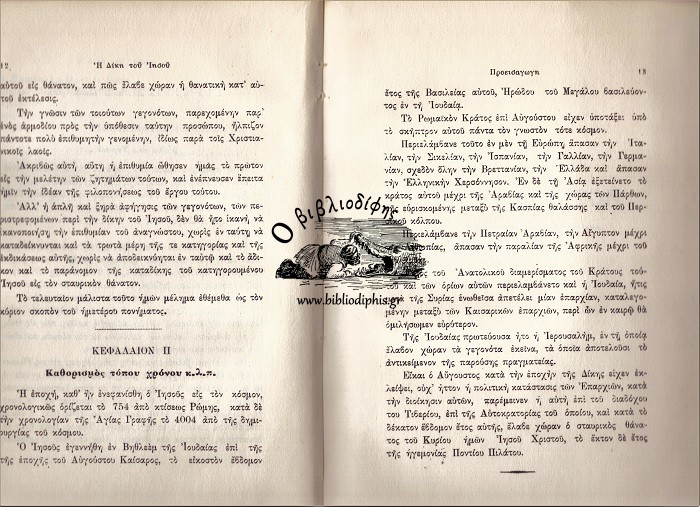 12 Ἡ Δίκη τοῦ Ἰησοῦ
αὐτοῦ εἰς θάνατον, καὶ πῶς ἔλαβε χώραν ἡ θανατικὴ κατ' αὐ-
τοῦ ἐκτέλεσις.
Τὴν γνῶσιν τῶν τοιούτων γεγονότων, παρεχομένην παρ'
ἑνὸς ἁρμοδίου πρὸς τὴν ὑπόθεσιν ταύτην προσώπου, ἤλπιζον
πάντοτε πολὺ ἐπιθυμητὴν γενομένην, ἰδίως παρὰ τοῖς Χριστια-
νικοῖς λαοῖς.
Ἀκριβῶς αὐτή, αὕτη ἡ ἐπιθυμία ὤθησεν ἡμᾶς τὸ πρῶτον
εἰς τὴν μελέτην τῶν ζητημάτων τούτων, καὶ ἐνέπνευσεν ἔπειτα
ἡμῖν τὴν ἰδέαν τῆς φιλοπονήσεως τοῦ ἔργου τούτου.
Ἀλλ' ἡ ἁπλῆ καὶ ξηρὰ ἀφήγησις τῶν γεγονότων, τῶν πε-
ριστρεφομένων περὶ τὴν δίκην τοῦ Ἰησοῦ, δὲν θὰ ἦτο ἱκανὴ νὰ
ἱκανοποιήση τὴν ἐπιθυμίαν τοῦ ἀναγνώστου, χωρὶς ἐν ταύτη νὰ
καταδείκνυνται καὶ τὰ τρωτὰ μέρη τῆς τε κατηγορίας καὶ τῆς
ἐκδικάσεως αὐτῆς, χωρὶς νὰ ἀποδεικνύηται ἐν ταὐτῷ καὶ τὸ ἄδι-
κον καὶ τὸ παράνομον τῆς καταδίκης τοῦ κατηγορουμένου
Ἰησοῦ εἰς τὸν σταυρικὸν θάνατον.
Τὸ τελευταῖον μάλιστα τοῦτο ἡμῶν μέλημα ἐθέμεθα ὡς τὸν
κύριον σκοπὸν τοῦ ἡμετέρου πονήματος.
ΚΕΦΑΛΑΙΟΝ II
Καθορισμὸς τόπου χρόνου κ.λ.π.
Ἡ ἐποχή, καθ' ἣν ἐνεφανίσθη ὁ Ἰησοῦς εἰς τὸν κόσμον,
χρονολογικῶς ὁρίζεται τὸ 754 ἀπὸ κτίσεως Ρώμης, κατὰ δὲ
τὴν χρονολογίαν τῆς Ἁγίας Γραφῆς τὸ 4004 ἀπὸ τῆς δημι-
ουργίας τοῦ κόσμου.
Ὁ Ἰησοῦς ἐγεννήθη ἐν Βηθλεὲμ τῆς Ἰουδαίας ἐπὶ τῆς
τῆς ἐποχῆς τοῦ Αὐγούστου Καίσαρος, τὸ εἰκοστὸν ἕβδομον
Προεισαγωγὴ 13
ἔτος τῆς Βασιλείας αὐτοῦ, Ἡρώδου τοῦ Μεγάλου βασιλεύον-
τος ἐν τῇ Ἰουδαίᾳ.
Τὸ Ρωμαϊκὸν Κράτος ἐπὶ Αὐγούστου εἶχεν ὑποτάξει ὑπὸ
τὸ σκῆπτρον αὐτοῦ πάντα τὸν γνωστὸν τότε κόσμον.
Περιελάμβανε τοῦτο ἐν μὲν τῇ Εὐρώπῃ ἅπασαν τὴν Ἰτα-
λίαν, τὴν Σικελίαν, τὴν Ἱσπανίαν, τὴν Γαλλίαν, τὴν Γερμα-
νίαν, σχεδὸν ὅλην τὴν Βρεττανίαν, τὴν Ἑλλάδα καὶ ἅπασαν
τὴν Ἑλληνικὴν Χερσόνησον. Ἐν δὲ τῇ Ἀσίᾳ ἐξετείνετο τὸ
κράτος αὐτοῦ μέχρι τῆς Ἀραβίας καὶ τῆς χώρας τῶν Πάρθων,
τῆς εὑρισκομένης μεταξὺ τῆς Κασπίας θαλάσσης καὶ τοῦ Περ-
κόλπου.
Περιελάμβανε τὴν Πετραίαν Ἀραβίαν, τὴν Αἴγυπτον μέχρι
ἅπασαν τὴν παραλίαν τῆς Ἀφρικῆς μέχρι τοῦ
τοῦ Ἀνατολικοῦ διαμερίσματος τοῦ Κράτους τού-
του καὶ τῶν ὁρίων αὐτῶν περιελαμβάνετο καὶ ἡ Ἰουδαία, ἥτις
μετὰ τῆς Συρίας ἑνωθεῖσα ἀπετέλει μίαν ἐπαρχίαν, καταλεγο-
μένην μεταξὺ τῶν Καισαρικῶν ἐπαρχιῶν, περὶ ὧν ἐν καιρῷ θὰ
ὁμιλήσωμεν εὐρύτερον.
Τῆς Ἰουδαίας πρωτεύουσα ἦτο ἡ Ἱερουσαλήμ, ἐν τῇ ὁποίᾳ
ἔλαβον χώραν τὰ γεγονότα ἐκεῖνα, τὰ ὁποῖα ἀποτελοῦσι τὸ
ἀντικείμενον τῆς παρούσης πραγματείας.
Εἶκαὶ ὁ Αὔγουστος κατὰ τὴν ἐποχὴν τῆς Δίκης εἶχεν ἐκ-
λείψει, οὐχ' ἧττον ἡ πολιτικὴ κατάστασις τῶν Ἐπαρχιῶν, κατὰ
τὴν διοίκησιν αὐτῶν, παρέμεινεν ἡ αὐτὴ ἐπὶ τοῦ διαδόχου
του Τιβερίου, ἐπὶ τῆς Αὐτοκρατορίας τοῦ ὁποίου, καὶ κατὰ τὸ
δέκατον ἕβδομον ἔτος αὐτῆς, ἔλαβε χώραν ὁ σταυρικὸς θάνα-
τος τοῦ Κυρίου ἡμῶν Ἰησοῦ Χριστοῦ, τὸ ἕκτον δὲ ἔτος
τῆς ἡγεμονίας Ποντίου Πιλάτου.
Ο βιβλιοδίφης
www.bibliodiphis.gr